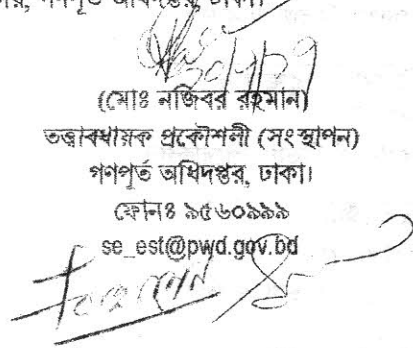 গণপূর্ত অধিদপ্তর, ঢাকা।
(মোঃ নজিবর রহমান)
তত্ত্বাবধায়ক প্রকৌশলী (সংস্থাপন)
গণপূর্ত অধিদপ্তর, ঢাকা।
ফোনঃ ৯৫৬০৯৯৯
se_est@pwd.gov.bd